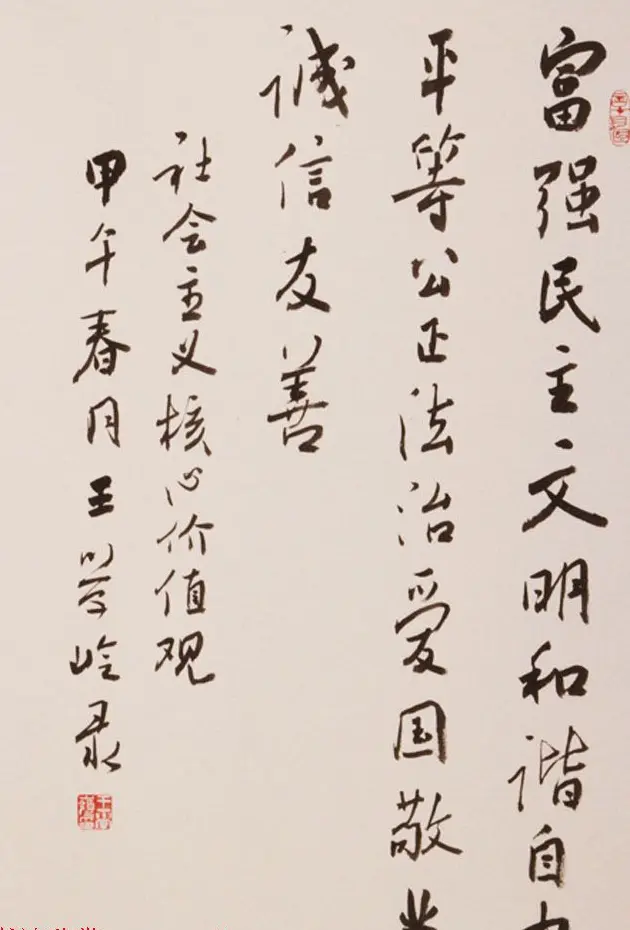 富强民主文明和谐自
平等公正法治爱国敬
诚信友善
社会主义核心价值观
甲午春月王学岭录